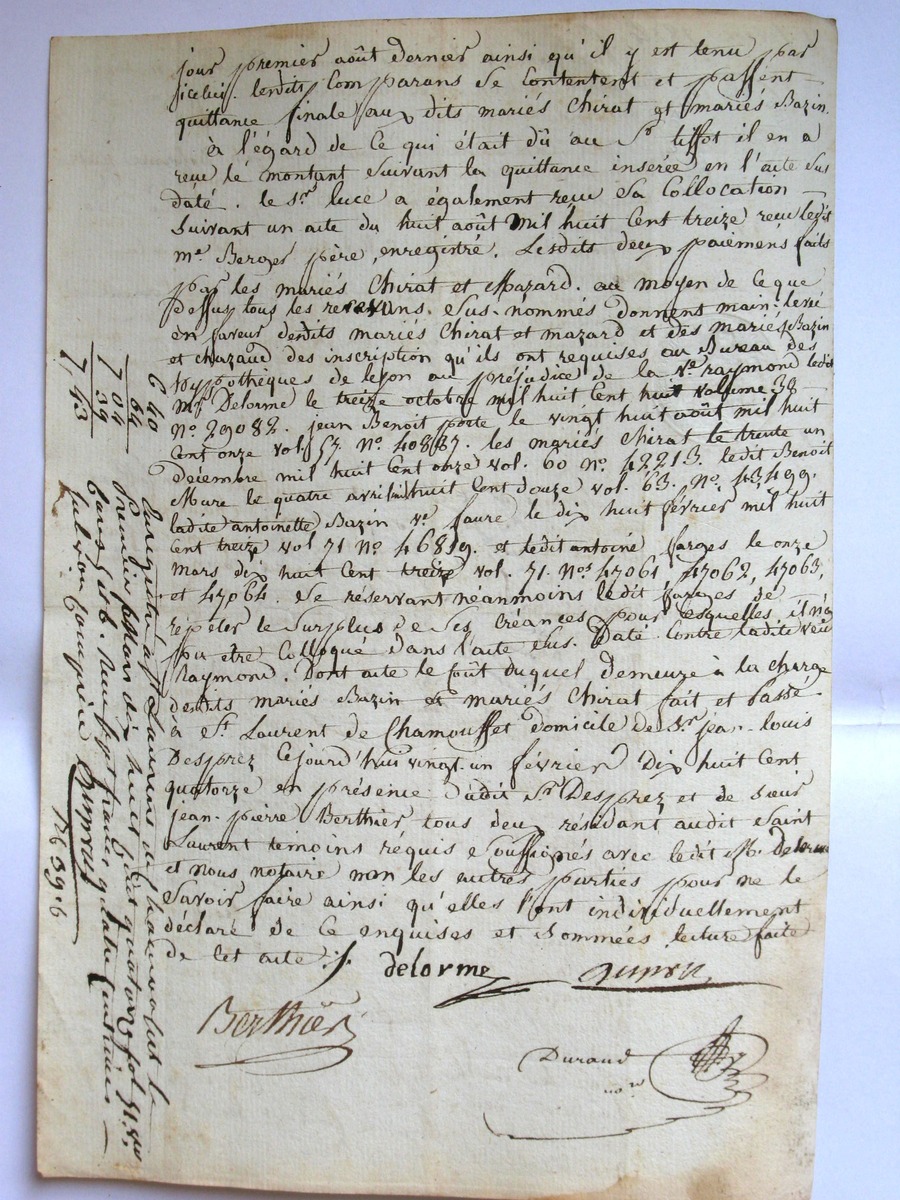 jour premier août dernier ainsi qu'il y est tenu par
icelui. lesdits Comparans se Contentent et passent
quittance finale aux dits mariés Chirat et mariés Bazin.
à l'égard de ce qui était dû au Sr. tissot il en a
reçu le montant suivant la quittance inserée en l'acte sus
daté. le Sr. luce a également reçu sa Collocation
suivant un acte du huit août mil huit Cent treize reçu ledit
me Berger père, enregistré. Lesdits deux paiemens faits
par les mariés Chirat et Mazard. au moyen de ce que
dessus tous les sus-nommés donnent main-levée
en faveur desdits mariés Chirat et mazard et des mariés Bazin
et chuzaud des inscription qu'ils ont requises au Bureau des
hypothèques de lyon au préjudice de la Ve. raymond ledit
Mr. Delorme le treize octobre mil huit Cent huit volume 38
No. 29082. jean Benoit porte le vingt huit août mil huit
Cent onze vol 57. No. 40887. les mariés Chirat le trente un
décembre mil huit Cent onze vol. 60 No. 42213. ledit Benoit
Mure le quatre avril huit Cent douze vol. 63. No. 43499.
ladite antoinette Bazin Ve. faure le dix huit février mil huit
Cent treize vol 71 No. 46819. et ledit antoine farges le onze
mars dix huit Cent treize vol. 71. Nos 47061, 47062, 47063,
et 47064. se réservant néanmoins ledit farges de
répéter le surplus de ses créances pour lesquelles il n'a
pu être Colloqué dans l'acte sus. Daté Contre ladite veuve
Raymond. Dont acte le coût duquel demeure à la charge
desdits mariés Bazin et mariés Chirat fait et Passé
à St. Laurent de Chamousset domicile de Sr. jean-louis
Desprez cejourd'hui vingt-un février Dix huit Cent
quatorze en présence dudit Sr. Desprez et de Sieur
jean-pierre Berthier tous deux résidant audit Saint
Laurent témoins requis soussignés avec ledit Mr. Delorme
et nous notaire non les autres parties pour ne le
savoir faire ainsi qu'elles l'ont individuellement
déclaré de ce enquises et sommées lecture faite
de cet acte.
delorme
Berthier
Duraud
nore
6 40
64
7 04
39
7,43
Enregistré à St Laurent de chamousset le
premier mars dix huit cent quatorze fol. 51. vo
Reçu sept francs quarante centimes
subvion comprise